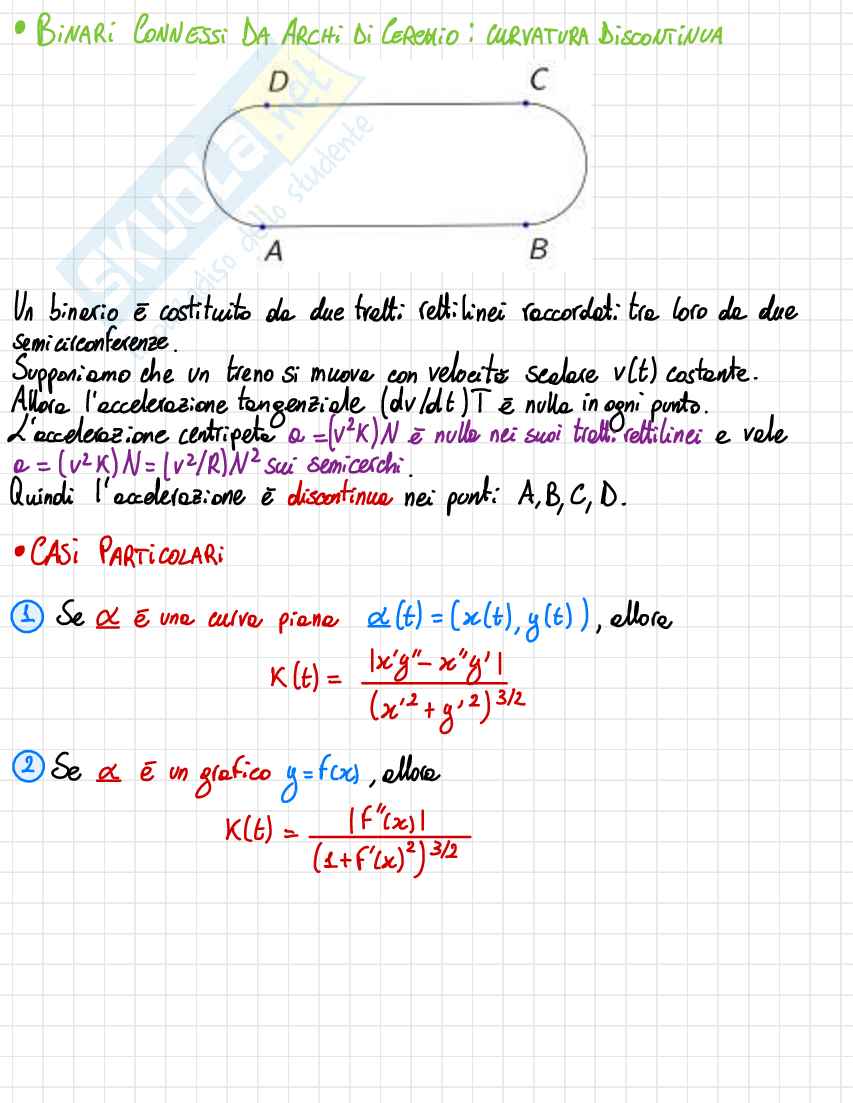 • BINARI CONNESSI DA ARCHI DI CERCHIO: CURVATURA DISCONTINUA
D C
A B
SKUOLA.net
il paradiso dello studente
Un binario è costituito da due tratti rettilinei raccordati tra loro da due
semicirconferenze.
Supponiamo che un treno si muova con velocità scalare v(t) costante.
Allora l'accelerazione tangenziale (dv/dt)T è nulla in ogni punto.
L'accelerazione centripeta a=(v²K)N è nulla nei suoi tratti rettilinei e vale
a=(v²K)N=(v²/R)N² sui semicerchi.
Quindi l'accelerazione è discontinua nei punti A,B,C,D.
• CASI PARTICOLARI
1 Se α è una curva piana α(t)=(x(t),y(t)), allora
K(t) = |x'y''-x''y'| / (x'²+y'²)^3/2
2 Se α è un grafico y=f(x), allora
K(t) = |f''(x)| / (1+f'(x)²)^3/2